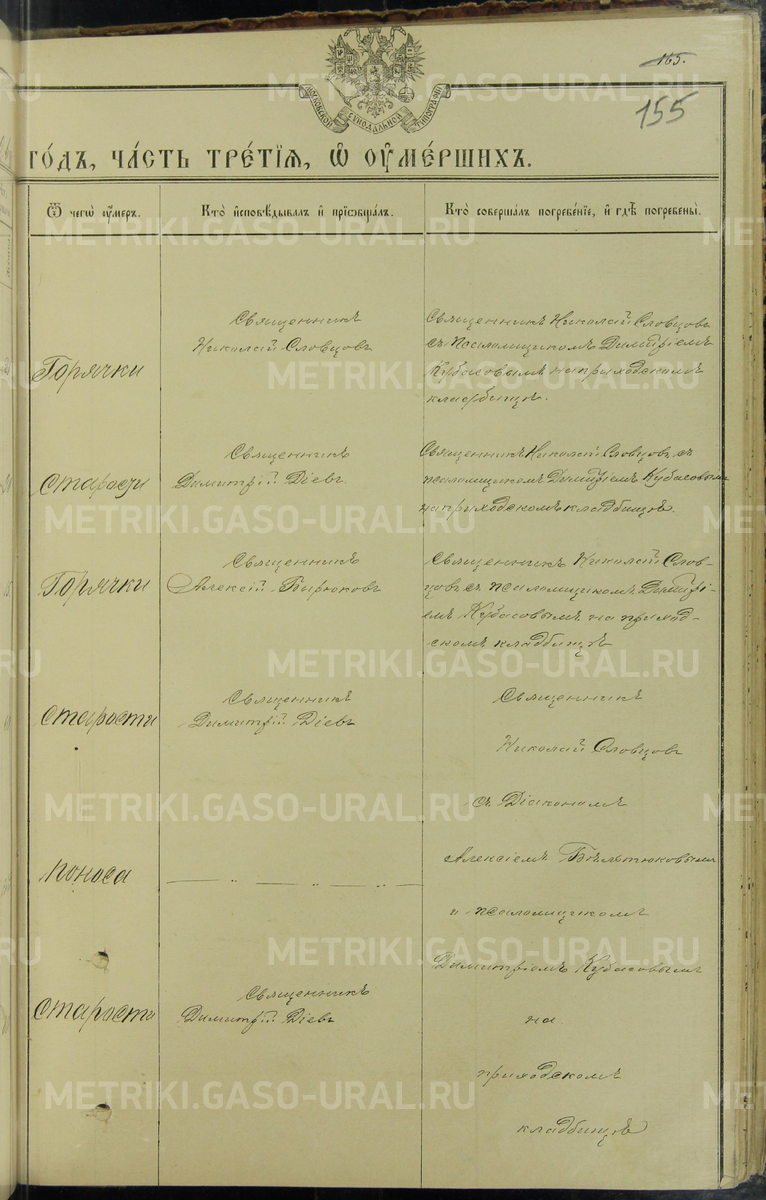 165.
155
МОСКОВСКОЙ СѴНОДАЛЬНОЙ ТИПОГРАФІИ
ГО́ДЪ, ЧА́СТЬ ТРЕ́ТІЯ, Ѽ ОУМЕ́РШИХЪ.
Ѿ чегѡ̀ оу҆́меръ.
Кто̀ и҆сповѣ́дывалъ и҆ прїѡбща́лъ.
Кто̀ соверша́лъ погребе́нїе, и҆ гдѣ̀ погребены̀.
Горячки
Священникъ
Николай Словцовъ
Священникъ Николай Словцовъ
съ псаломщикомъ Димитріемъ
Кубасовымъ на приходскомъ
кладбищѣ.
старости
Священникъ
Димитрій Діевъ.
Священникъ Николай Словцовъ съ
псаломщикомъ Димитріемъ Кубасовымъ
на приходскомъ кладбищѣ.
Горячки
Священникъ
Алексій Бирюковъ
Священникъ Николай Слов-
цовъ съ псаломщикомъ Димитрі-
емъ Кубасовымъ на приход-
скомъ кладбищѣ
старости
Священникъ
Димитрій Діевъ
Священникъ
Николай Словцовъ
съ Діакономъ
Алексіемъ
и псаломщикомъ
Димитріемъ Кубасовымъ
на
приходскомъ
кладбищѣ
поноса
старости
Священникъ
Димитрій Діевъ
METRIKI.GASO-URAL.RU